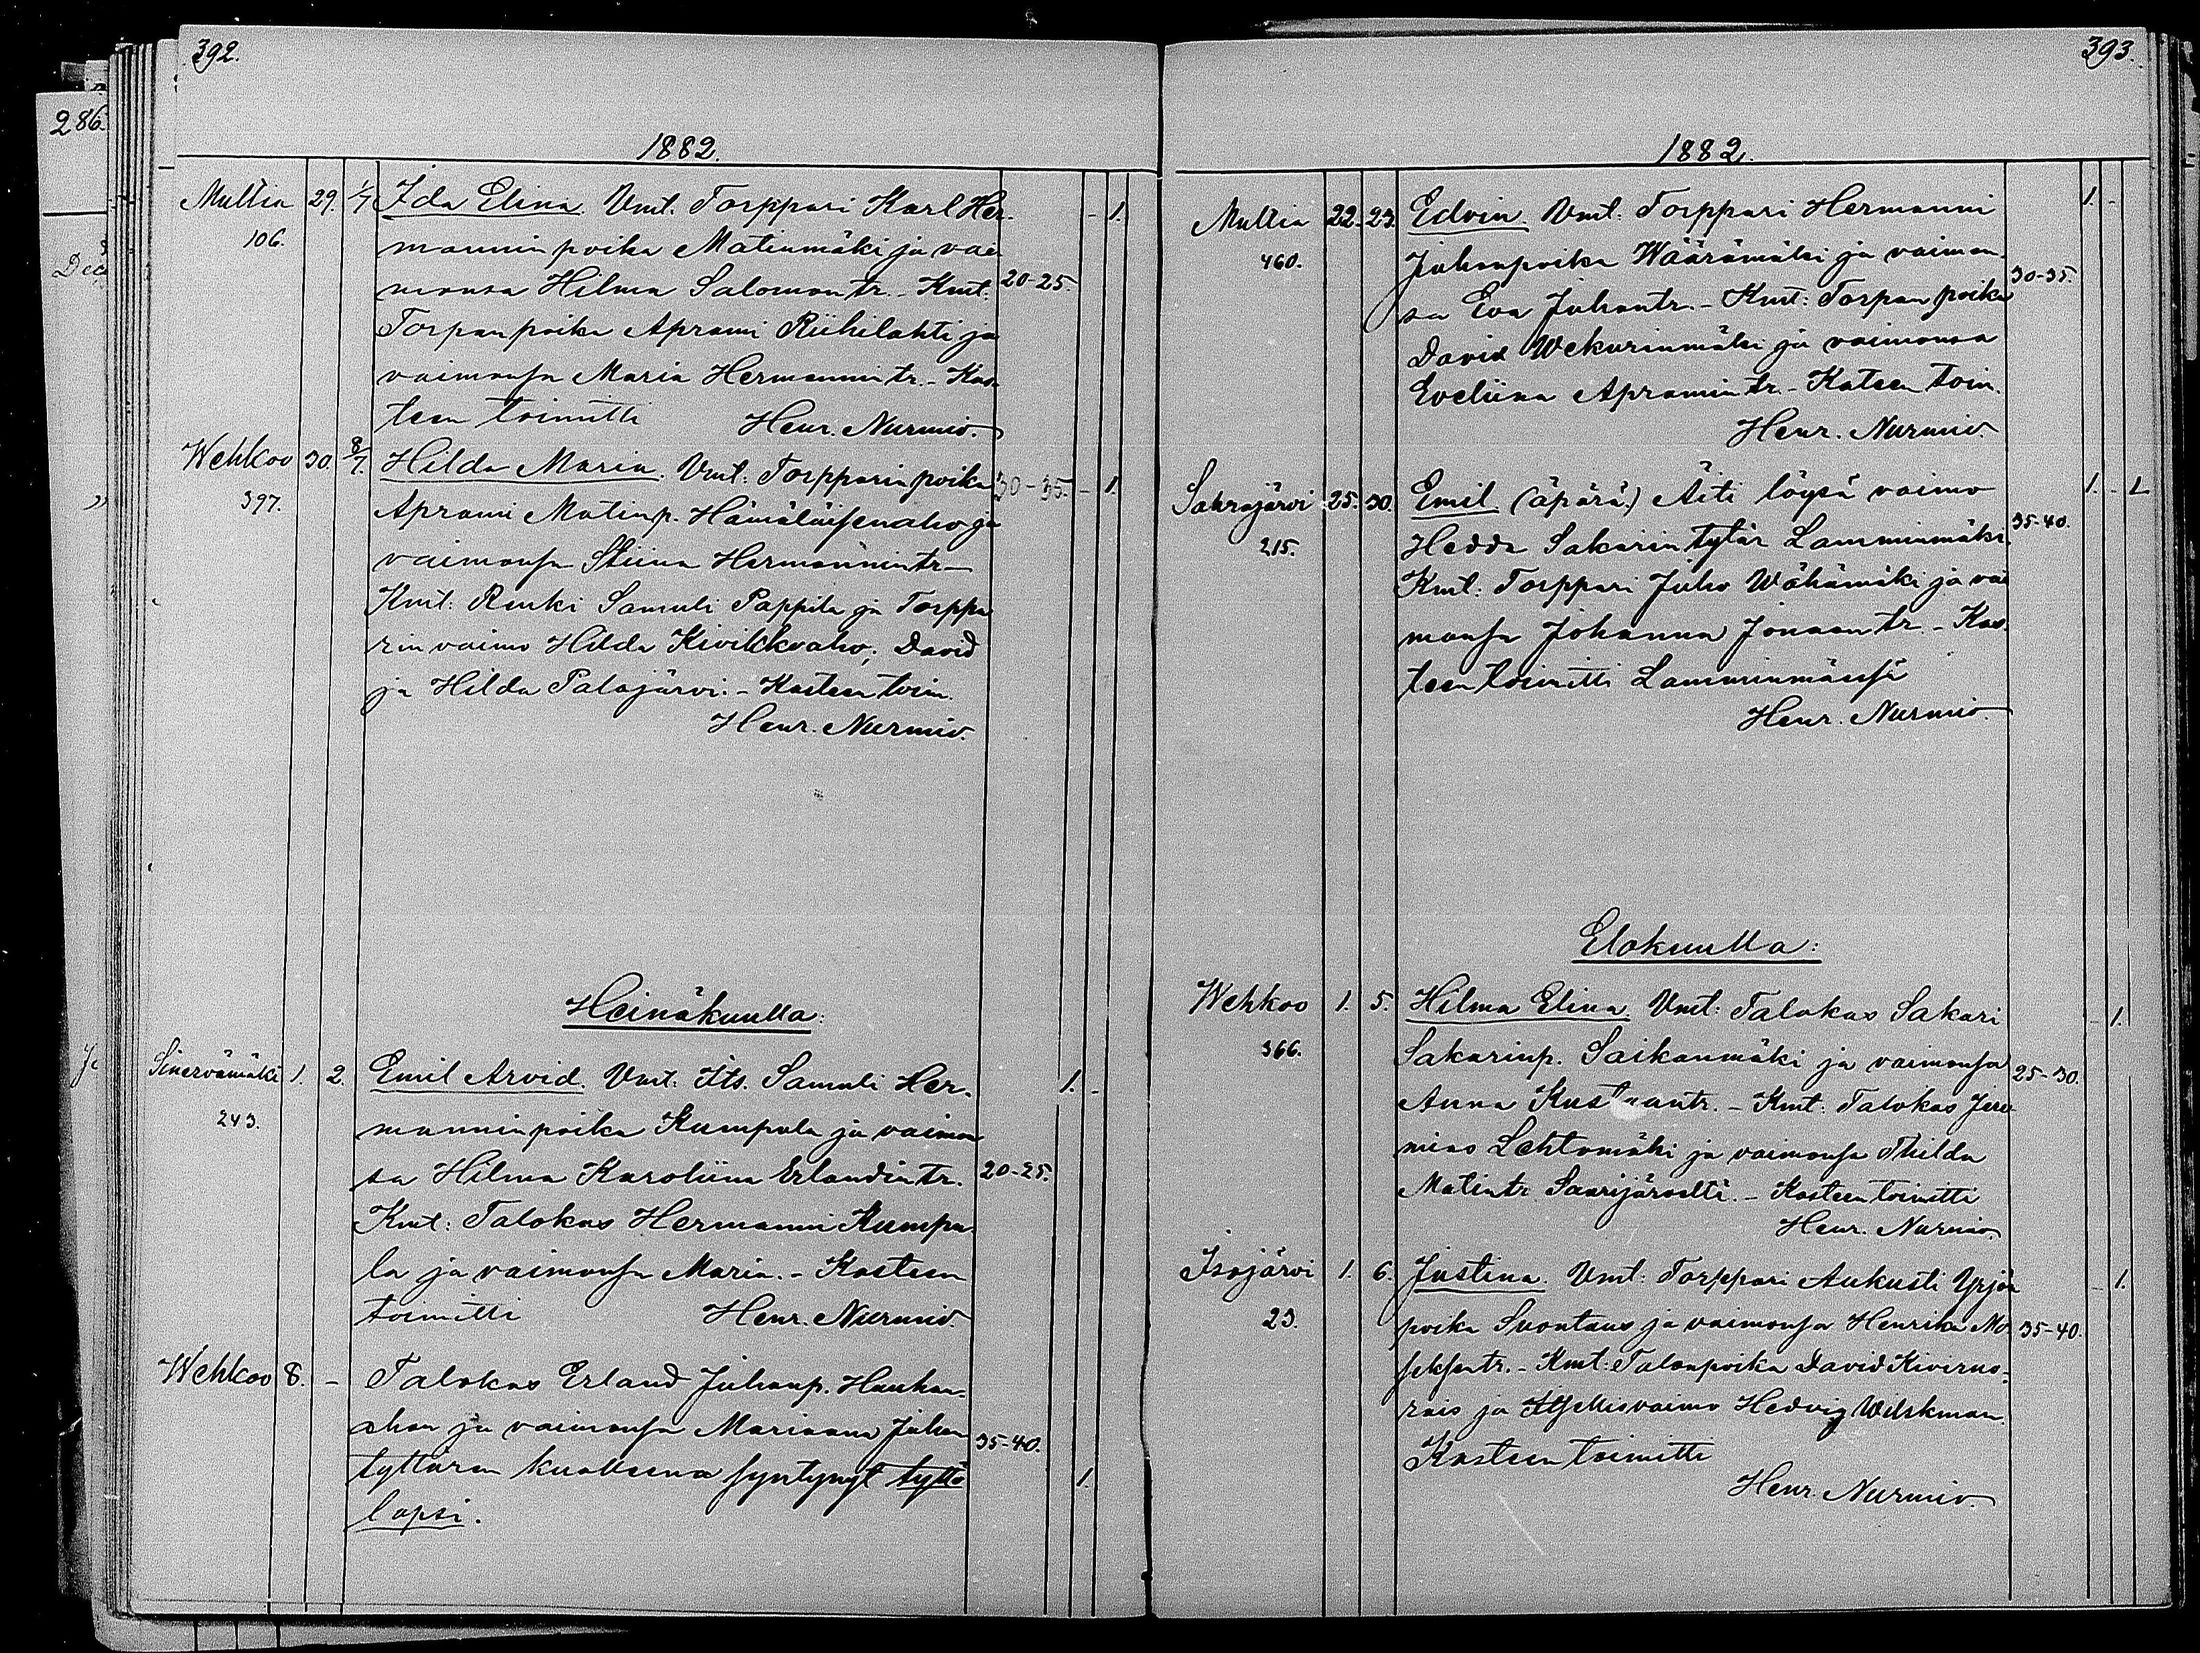 392.
286.
1882.
Multia 29. 1/7 Ida Elina. Vmt. Torppari Karl Her-
106.
mannin poika Matinmäki ja vai
monsa Hilma Salomontr. - Kmt: 20-25. - 1.
Torpanpoika Aprami Riihilahti ja
vaimonsa Maria Hermannintr. - Kas
teen toimitti Henr. Nurmio.
Wehkoo 30. 8/7. Hilda Maria. Vmt: Torpparin poika 30-35. - 1.
397.
Aprami Matinp. Hämäläisenaho ja
vaimonsa Stiina Hermannintr -
Kmt: Renki Samuli Pappila ja Torppa
rin vaimo Hilda Kivikkoaho; David
ja Hilda Palojärvi. - Kasteen toim.
Henr. Nurmio.
Heinäkuulla:
Sinervämäki 1. 2. Emil Arvid. Vmt: Its. Samuli Her- 1. -
243.
mannin poika Kumpula ja vaimon
sa Hilma Karoliina Erlandintr. 20-25.
Kmt: Talokas Hermanni Kumpu-
la ja vaimonsa Maria. - Kasteen
toimitti Henr. Nurmio.
Wehkoo 8. - Talokas Erland Juhanp. Hauhan-
ahon ja vaimonsa Mariaana Juhan 35-40.
tyttären kuolleena syntynyt tyttö 1.
lapsi.
393.
1882.
Multia 22. 23. Edvin. Vmt: Torppari Hermanni 1. -
460.
Juhanpoika Wäärämäki ja vaimon-
sa Eva Juhantr. - Kmt: Torpan poika 30-35.
David Wekurinmäki ja vaimonsa
Eveliina Apramintr. - Kateen toim.
Henr. Nurmio.
Sahrajärvi 25. 30. Emil (äpärä.) Äiti löysä vaimo 1. - 1.
215.
Hedda Sakarin tytär Lamminmäki 35-40.
Kmt: Torppari Juho Wähämäki ja vai
monsa Johanna Jonaantr. - Kas-
teen toimitti Lamminmäissä
Henr. Nurmio.
Elokuulla:
Wehkoo 1. 5. Hilma Elina. Vmt: Talokas Sakari - 1.
366.
Sakarinp. Saikanmäki ja vaimonsa 25-30.
Anna Kustaantr. - Kmt: Talokas Jere-
mias Lehtomäki ja vaimonsa Thilda
Matintr Saarijärvelti. - Kasteen toimitti
Henr. Nurmio.
Isojärvi 1. 6. Justina. Vmt: Torppari Aukusti Yrjön - 1.
23.
poika Suontaus ja vaimonsa Henrika Mo- 35-40.
seksentr. - Kmt: Talonpoika David Kiviruo-
rais ja Itsellisvaimo Hedvig Wilskman.
Kasteen toimitti
Henr. Nurmio.